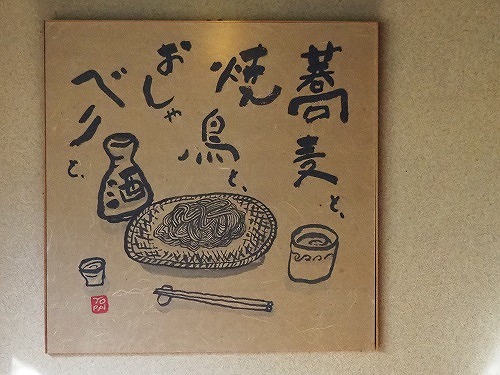 蕎麦と、
焼鳥と、
おしゃべりと、
酒